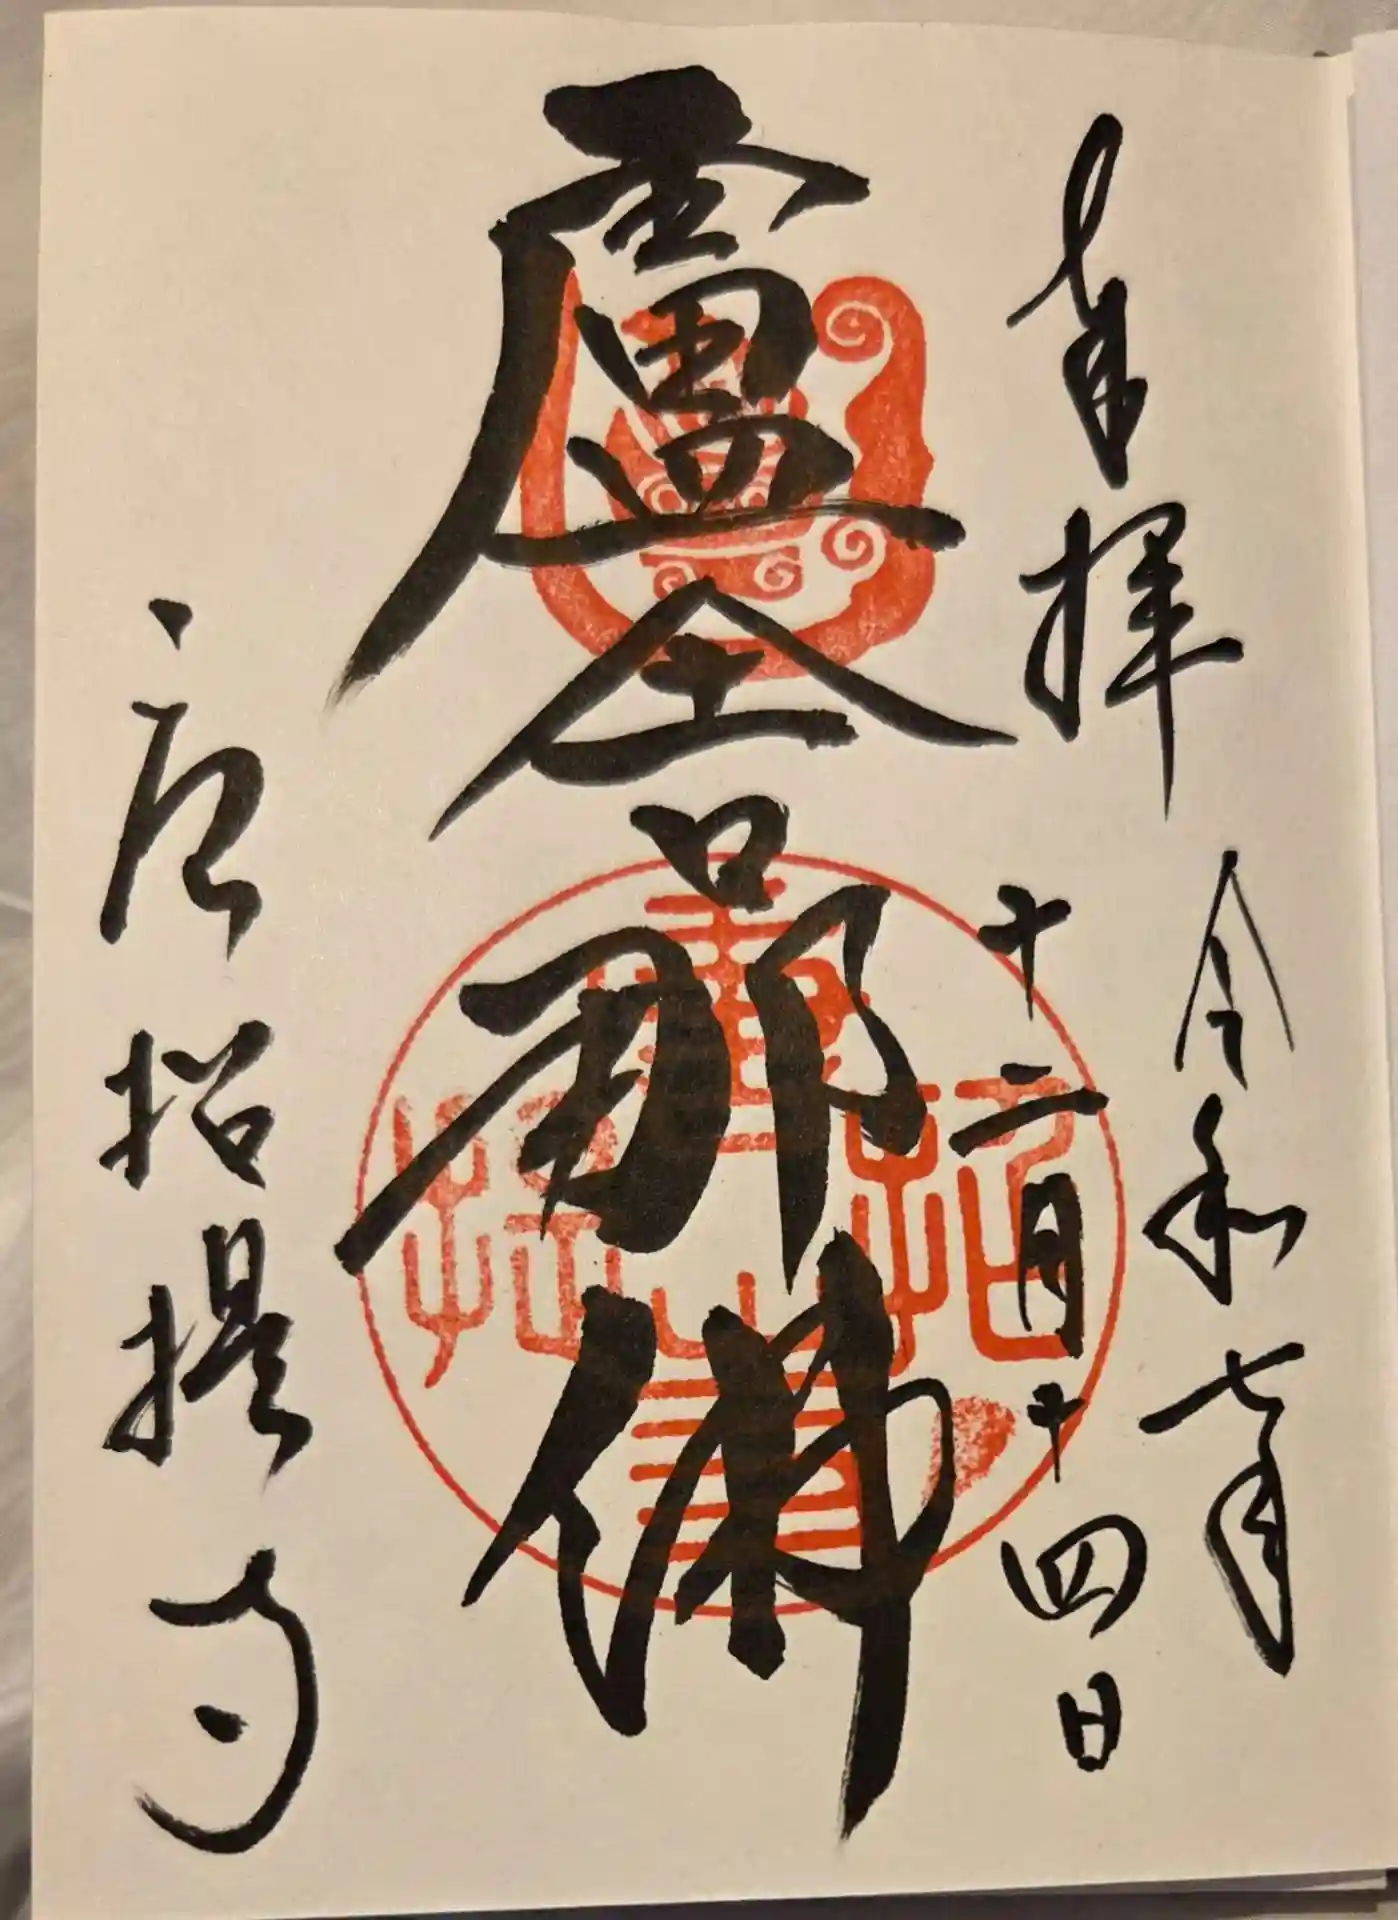 奉拝
令和七年
十二月十四日
盧舎那佛
唐招提寺